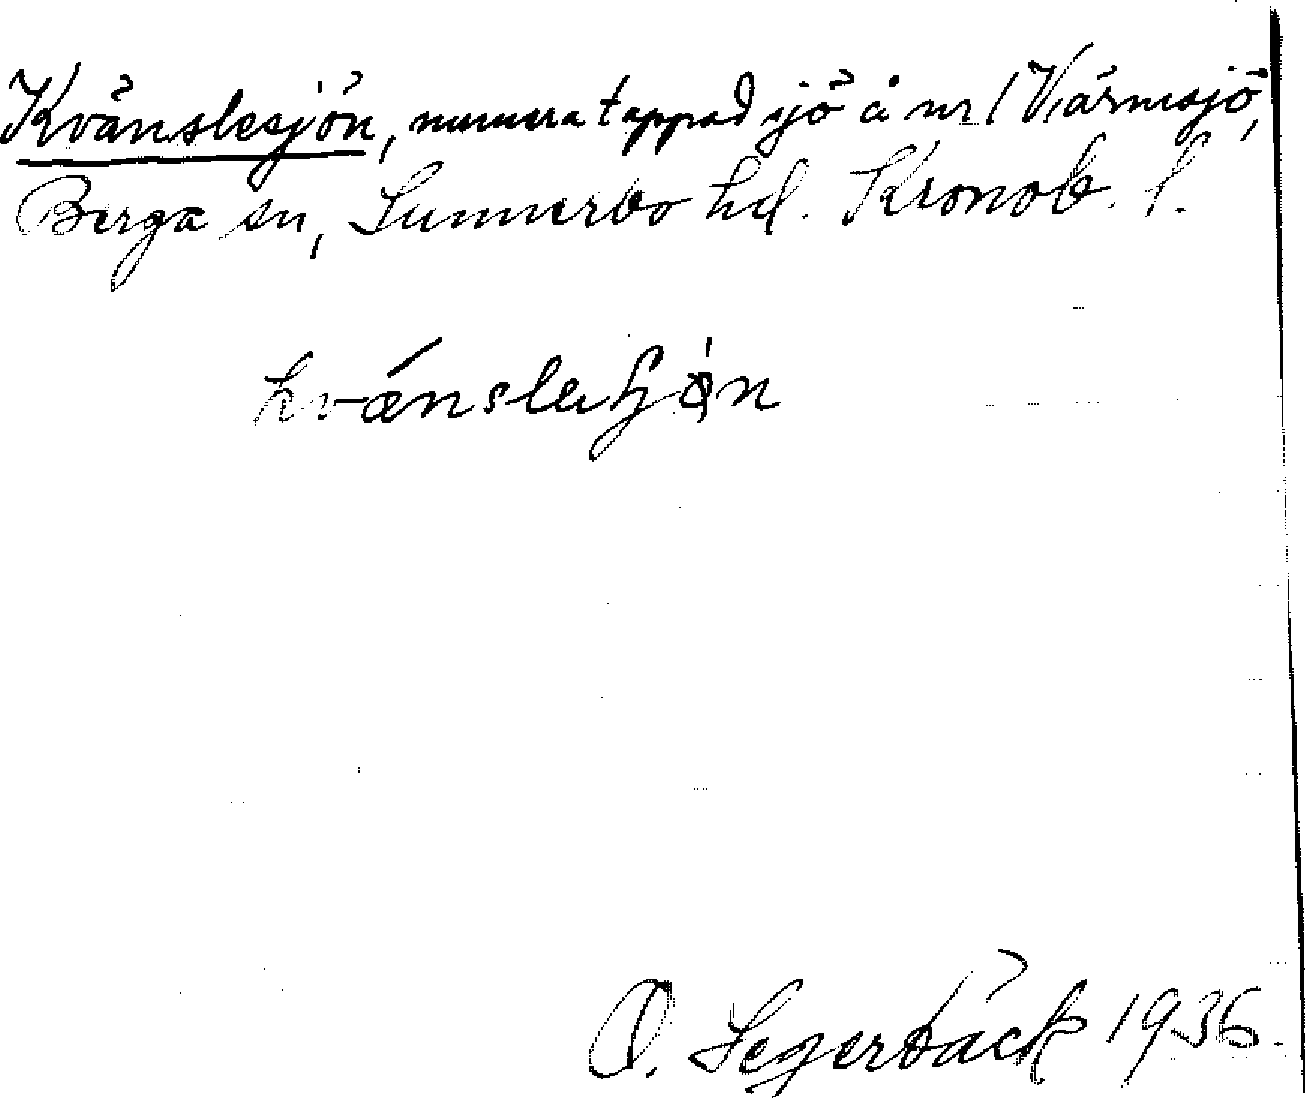 Kvänslesjön, numera tappad sjö å nr 1 Värmsjö,
Berga sn, Sunnerbo hd. Kronob. l.
kvænsleɧǿn
O. Segerbäck 1936.